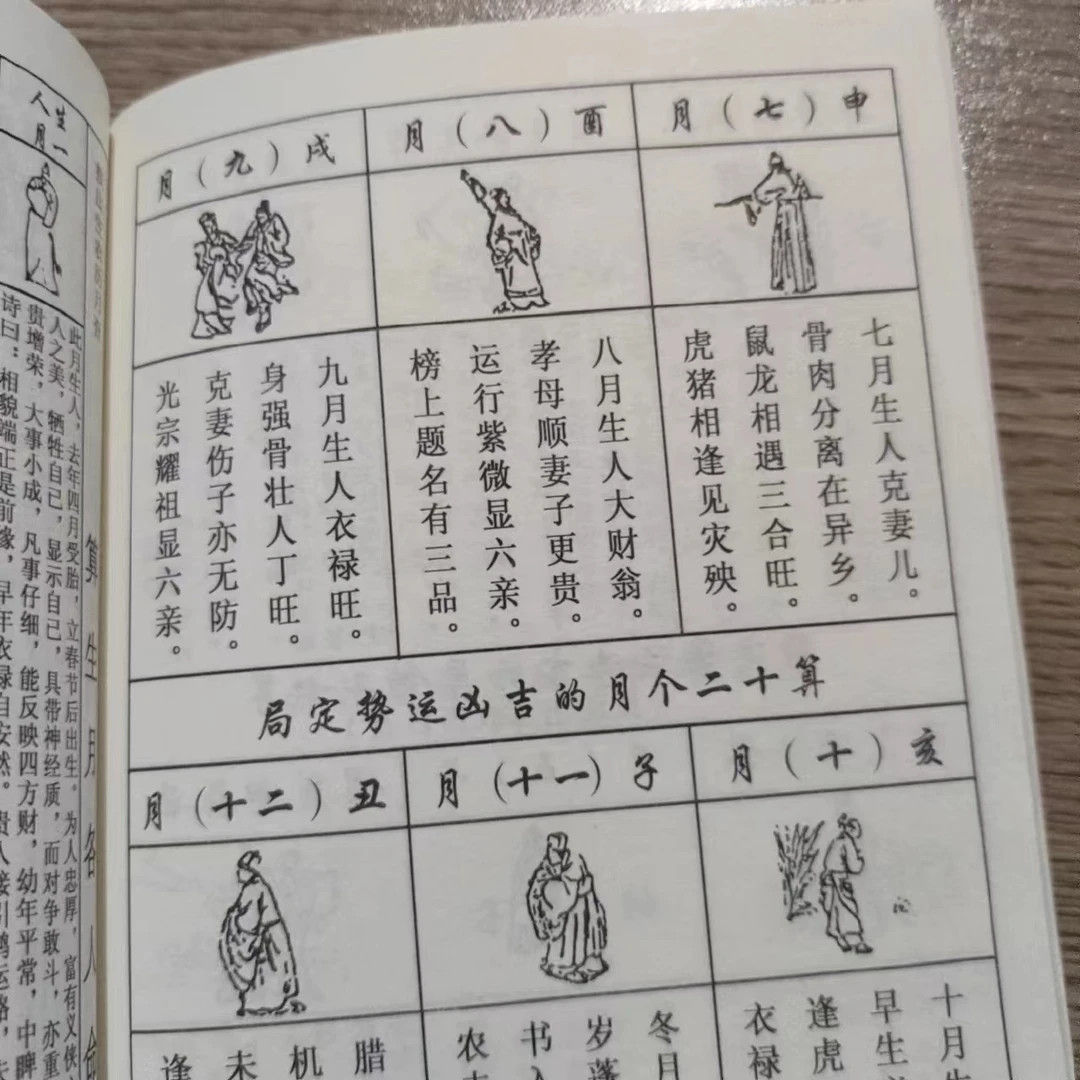 申（七）月
七月生人克妻儿。
骨肉分离在异乡。
鼠龙相遇三合旺。
虎猪相逢见灾殃。
酉（八）月
八月生人大财翁。
孝母顺妻子更贵。
运行紫微显六亲。
榜上题名有三品。
戌（九）月
九月生人衣禄旺。
身强骨壮人丁旺。
克妻伤子亦无防。
光宗耀祖显六亲。
算十二个月的吉凶运势定局
亥（十）月
十月生
早生
逢虎
衣禄
子（十一）月
冬月
岁蓬
书入
农
丑（十二）月
腊
机
未
逢
算生月
人
生人
一月
此月生人，去年四月受胎，立春节后出生。为人忠厚，富有义侠
人之美，牺牲自己，显示自己，具带神经质，而对争敢斗，亦重
贵增荣，大事小成，凡事仔细，能反映四方财，幼年平常，中
诗曰：相貌端正是前缘，早年衣禄自安然。贵人接引鸿运路，